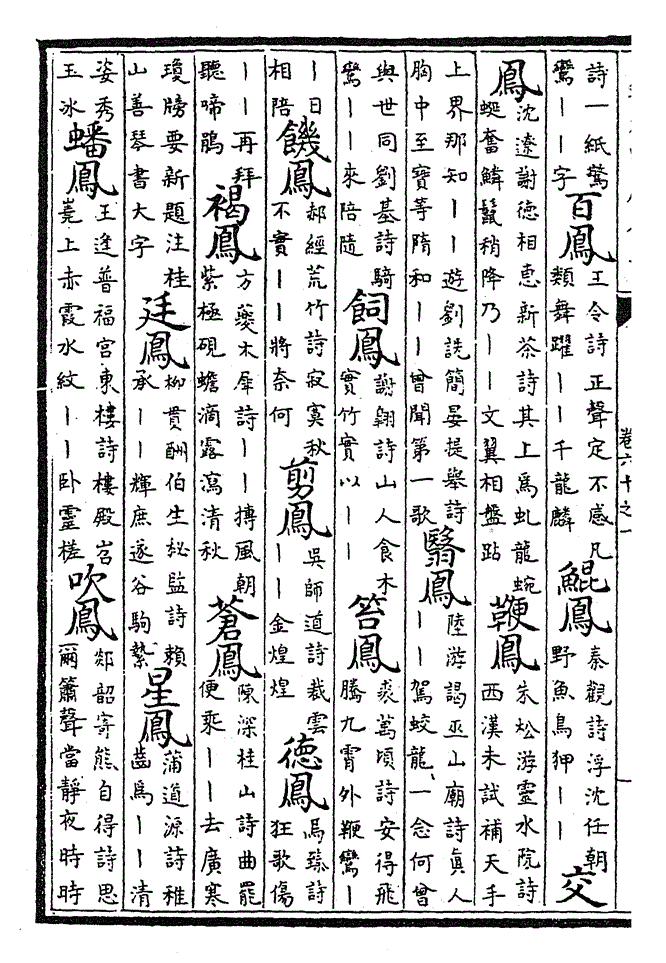 詩一紙驚鸞丨丨字百鳳王令詩正聲定不感凡類舞躍丨丨千龍麟鯤鳳秦觀詩浮沈任朝野魚鳥狎丨丨交
鳳沈遼謝德相惠新茶詩其上爲虬龍蜿蜒奮鱗鬣稍降乃丨丨文翼相盤跕鞭鳳朱松游靈水院詩西漢未試補天手
上界那知丨丨遊劉詵簡晏提舉詩胸中至寶等隋和丨丨曾聞第一歌翳鳳陸游謁巫山廟詩眞人丨丨駕蛟龍一念何曾
與世同劉基詩騎鸞丨丨來陪隨飼鳳謝翱詩山人食木實竹實以丨丨笞鳳裘萬頃詩安得飛騰九霄外鞭鸞丨
丨日相陪饑鳳郝經荒竹詩寂寞秋不實丨丨將奈何剪鳳吳師道詩裁雲丨丨金煌煌德鳳馬臻詩狂歌傷
丨丨再拜聽啼鵑褐鳳方夔木犀詩丨丨摶風朝紫極硯蟾滴露瀉清秋蒼鳳陳深桂山詩曲罷便乘丨丨去廣寒
瓊牓要新題注桂山善琴書大字廷鳳柳貫酬伯生秘監詩賴承丨丨輝庶遂谷駒縶星鳳蒲道源詩稚齒爲丨丨清
姿秀玉冰蟠鳳王逢普福宮東樓詩樓殿岧嶤上赤霞水紋丨丨卧靈槎吹鳳郯韶寄熊自得詩思爾簫聲當靜夜時時
卷六十之一